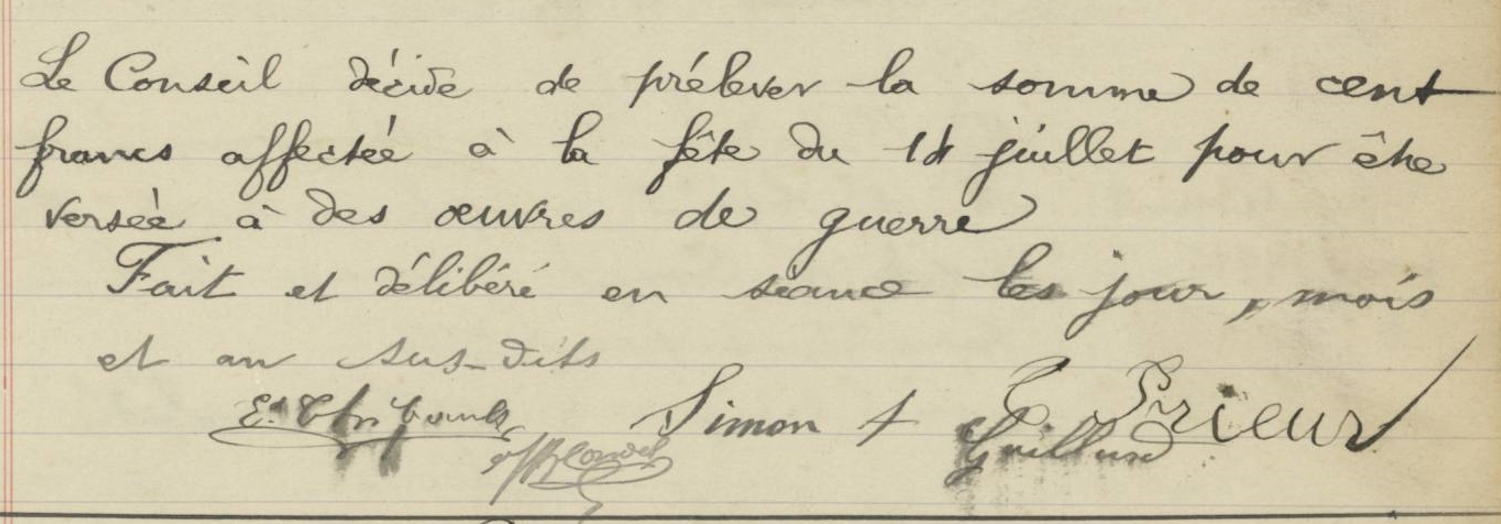 Le Conseil décide de prélever la somme de cent
francs affectée à la fête du 14 juillet pour être
versée à des œuvres de guerre
Fait et délibéré en séance les jour, mois
et an sus-dits
Simon
Prieur